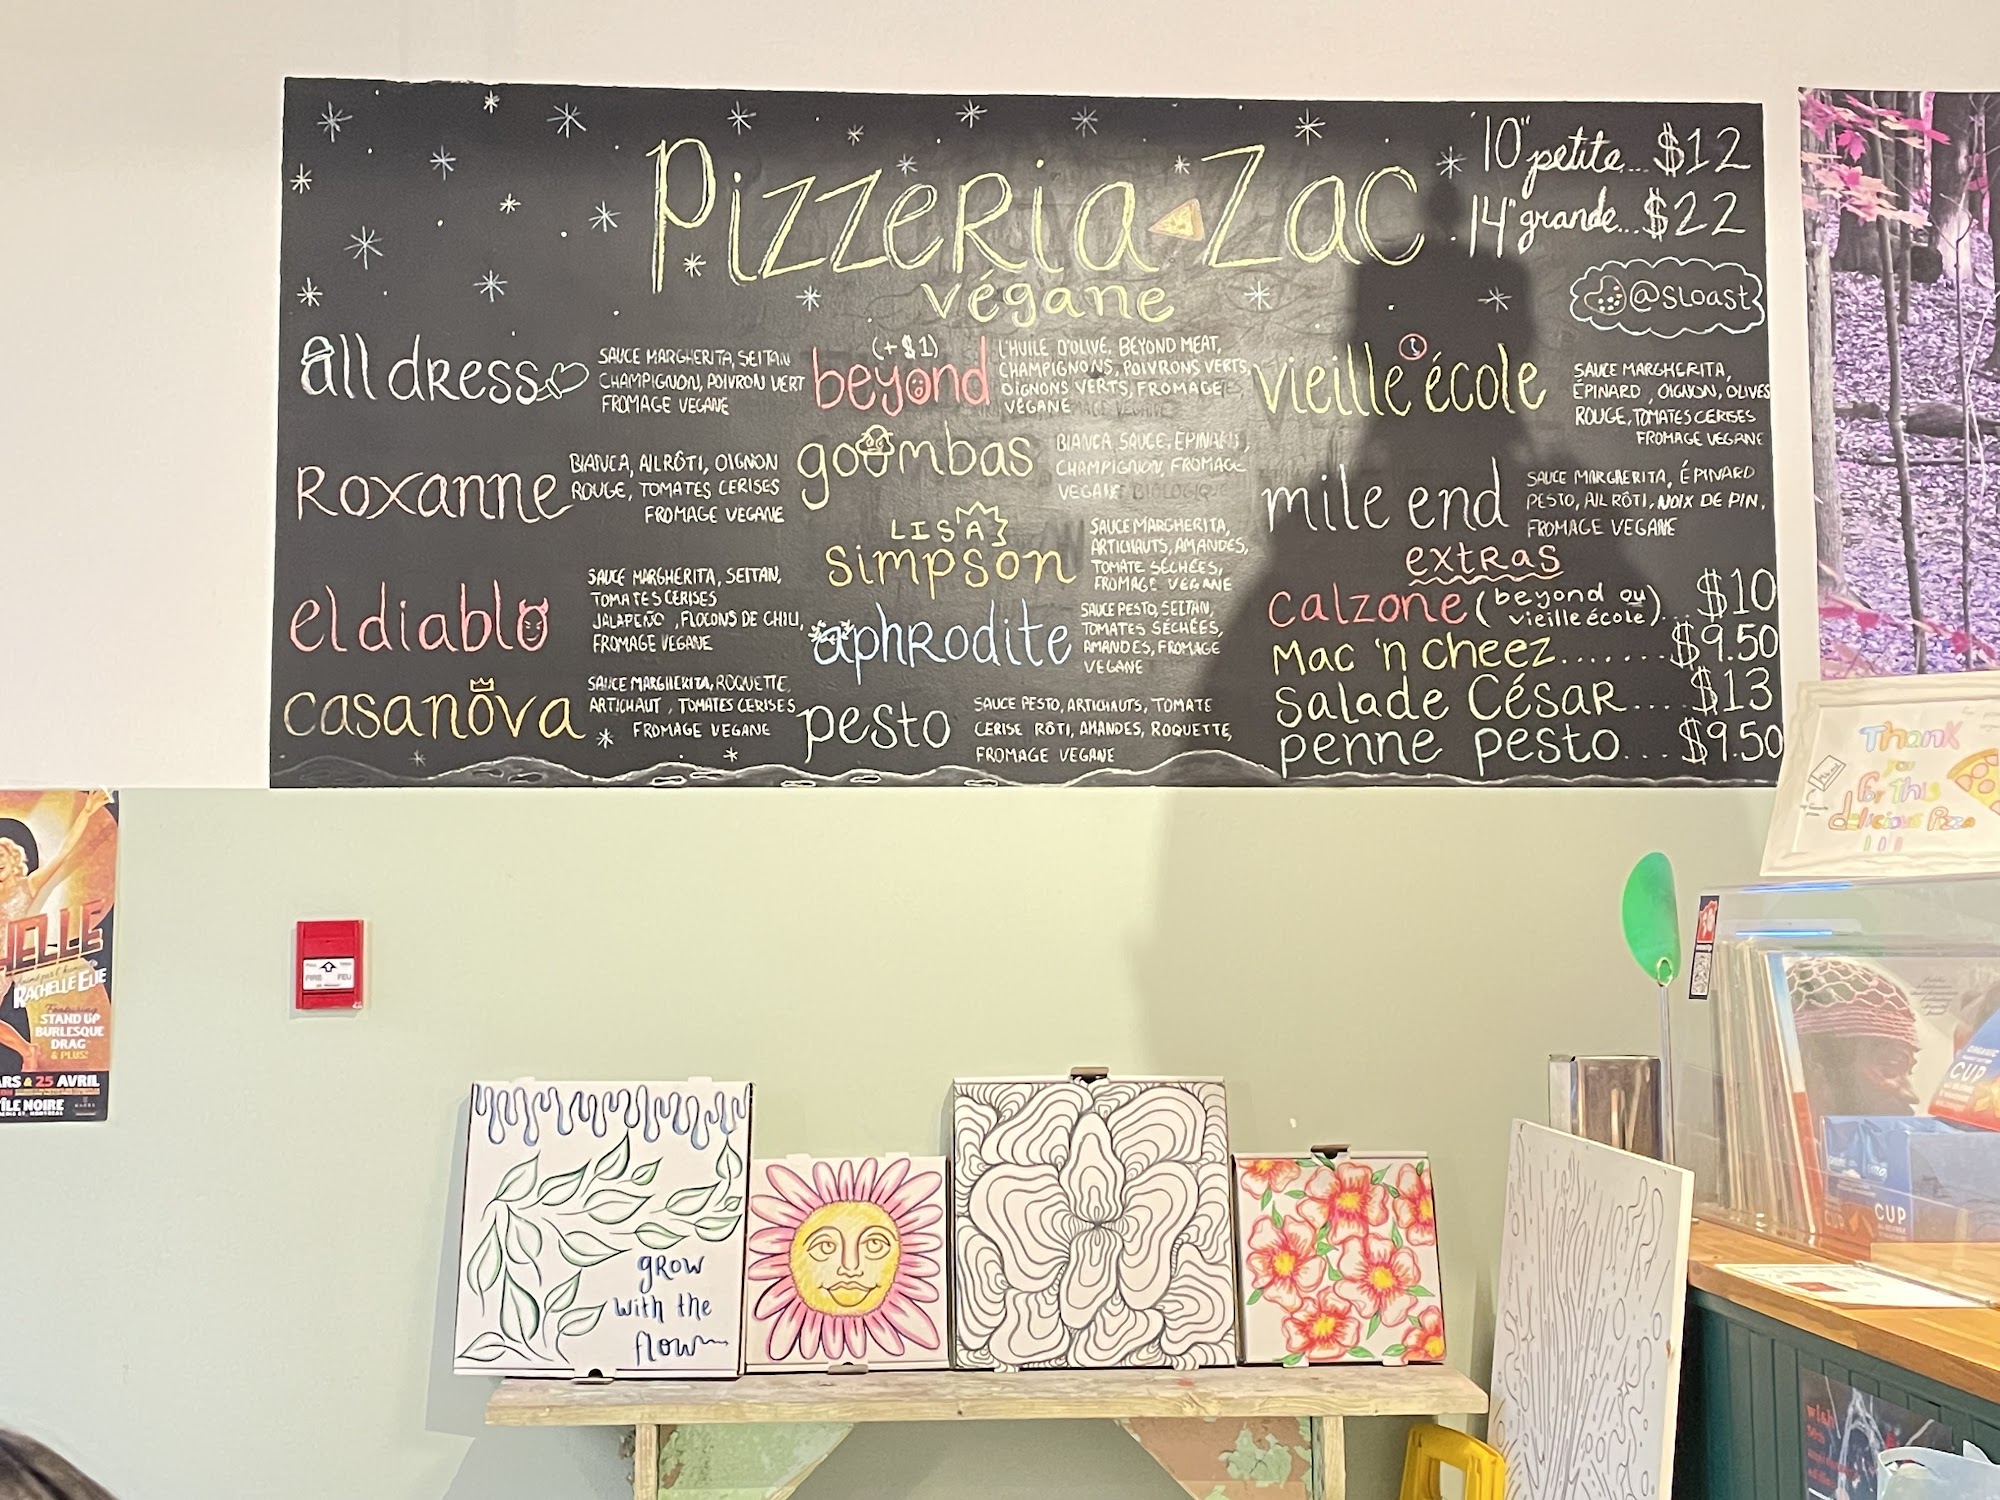 Pizzeria Zac
végane
10" petite... $12
14" grande... $22
@sloast
all dress
SAUCE MARGHERITA, SEITAN
CHAMPIGNON, POIVRON VERT
FROMAGE VEGANE
Roxanne
BIANCA, AIL RÔTI, OIGNON
ROUGE, TOMATES CERISES
FROMAGE VEGANE
el diablo
SAUCE MARGHERITA, SEITAN,
TOMATES CERISES
JALAPEÑO, FLOCONS DE CHILI,
FROMAGE VEGANE
casanova
SAUCE MARGHERITA, ROQUETTE,
ARTICHAUT, TOMATES CERISES
FROMAGE VEGANE
(+$1)
beyond
L'HUILE D'OLIVE, BEYOND MEAT,
CHAMPIGNONS, POIVRONS VERTS,
OIGNONS VERTS, FROMAGE
VÉGANE
goombas
BIANCA SAUCE, EPINARD,
CHAMPIGNON, FROMAGE
VEGANE BIOLOGIQUE
LISA
simpson
SAUCE MARGHERITA,
ARTICHAUTS, AMANDES,
TOMATE SÉCHÉES,
FROMAGE VEGANE
aphrodite
SAUCE PESTO, SEITAN,
TOMATES SÉCHÉES,
AMANDES, FROMAGE
VEGANE
pesto
SAUCE PESTO, ARTICHAUTS, TOMATE
CERISE RÔTI, AMANDES, ROQUETTE,
FROMAGE VEGANE
vieille école
SAUCE MARGHERITA,
ÉPINARD, OIGNON, OLIVES
ROUGE, TOMATES CERISES
FROMAGE VEGANE
mile end
SAUCE MARGHERITA, ÉPINARD
PESTO, AIL RÔTI, NOIX DE PIN,
FROMAGE VEGANE
extras
calzone (beyond ou vieille école)... $10
Mac 'n cheez....... $9.50
Salade César.... $13
penne pesto... $9.50
Thank
you
for this
delicious Pizza
!!!
ELLE
RACHELLE ELIE
STAND UP
BURLESQUE
DRAG
& PLUS!
ARS & 25 AVRIL
ÎLE NOIRE
FIRE FEU
grow
with the
flow
ORGANIC
CUP
CUP
CUP
wish